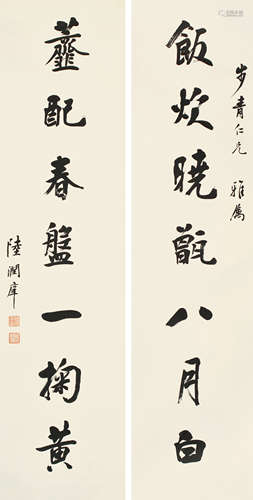 步青仁兄 雅屬
飯炊曉甑八月白
虀配春盤一掬黃
陸潤庠